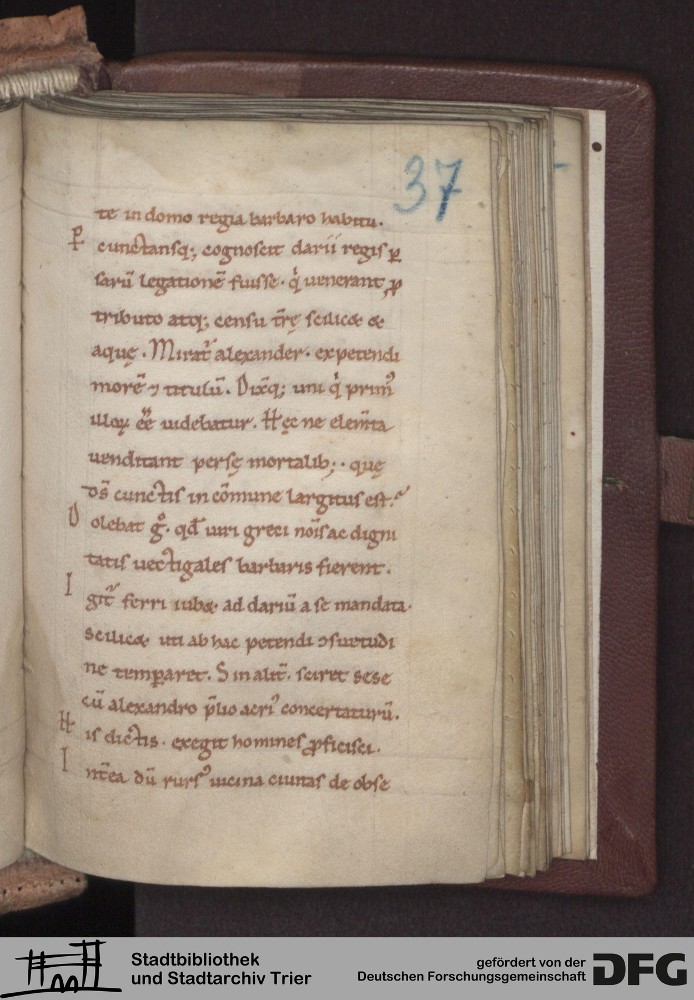 37
te in domo regia barbaro habitu.
P̱cunctansq; cognoscit darii regis ꝑ
sarū legationē fuisse. q̇ uenerant ꝓ
tributo atq; censu t̄rę scilicet et
aquę. Mirat᷑ alexander. expetendi
morē ⁊ titulū. Dix̄q; uni q̇ prim᷒
illoꝝ eē̄ uidebatur. Hęc ne elem̄ta
uenditant persę mortalib;. quę
d̄s cunctis in cōmune largitus est.
Dolebat g̊. qđ uiri greci nōīs ac digni
tatis uectigales barbaris fierent.
Igit᷑ ferri iubet ad dariū a se mandata.
scilicet uti ab hac petendi ↄsuetudi
ne temparet. Sin alit̄. sciret sese
cū alexandro p̄lio acri᷒ concertaturū.
His dictis. exegit homines ꝓficisci.
Int̄ea dū rurs᷒ uicina ciuitas de obse
Stadtbibliothek
und Stadtarchiv Trier
gefördert von der
Deutschen Forschungsgemeinschaft
DFG